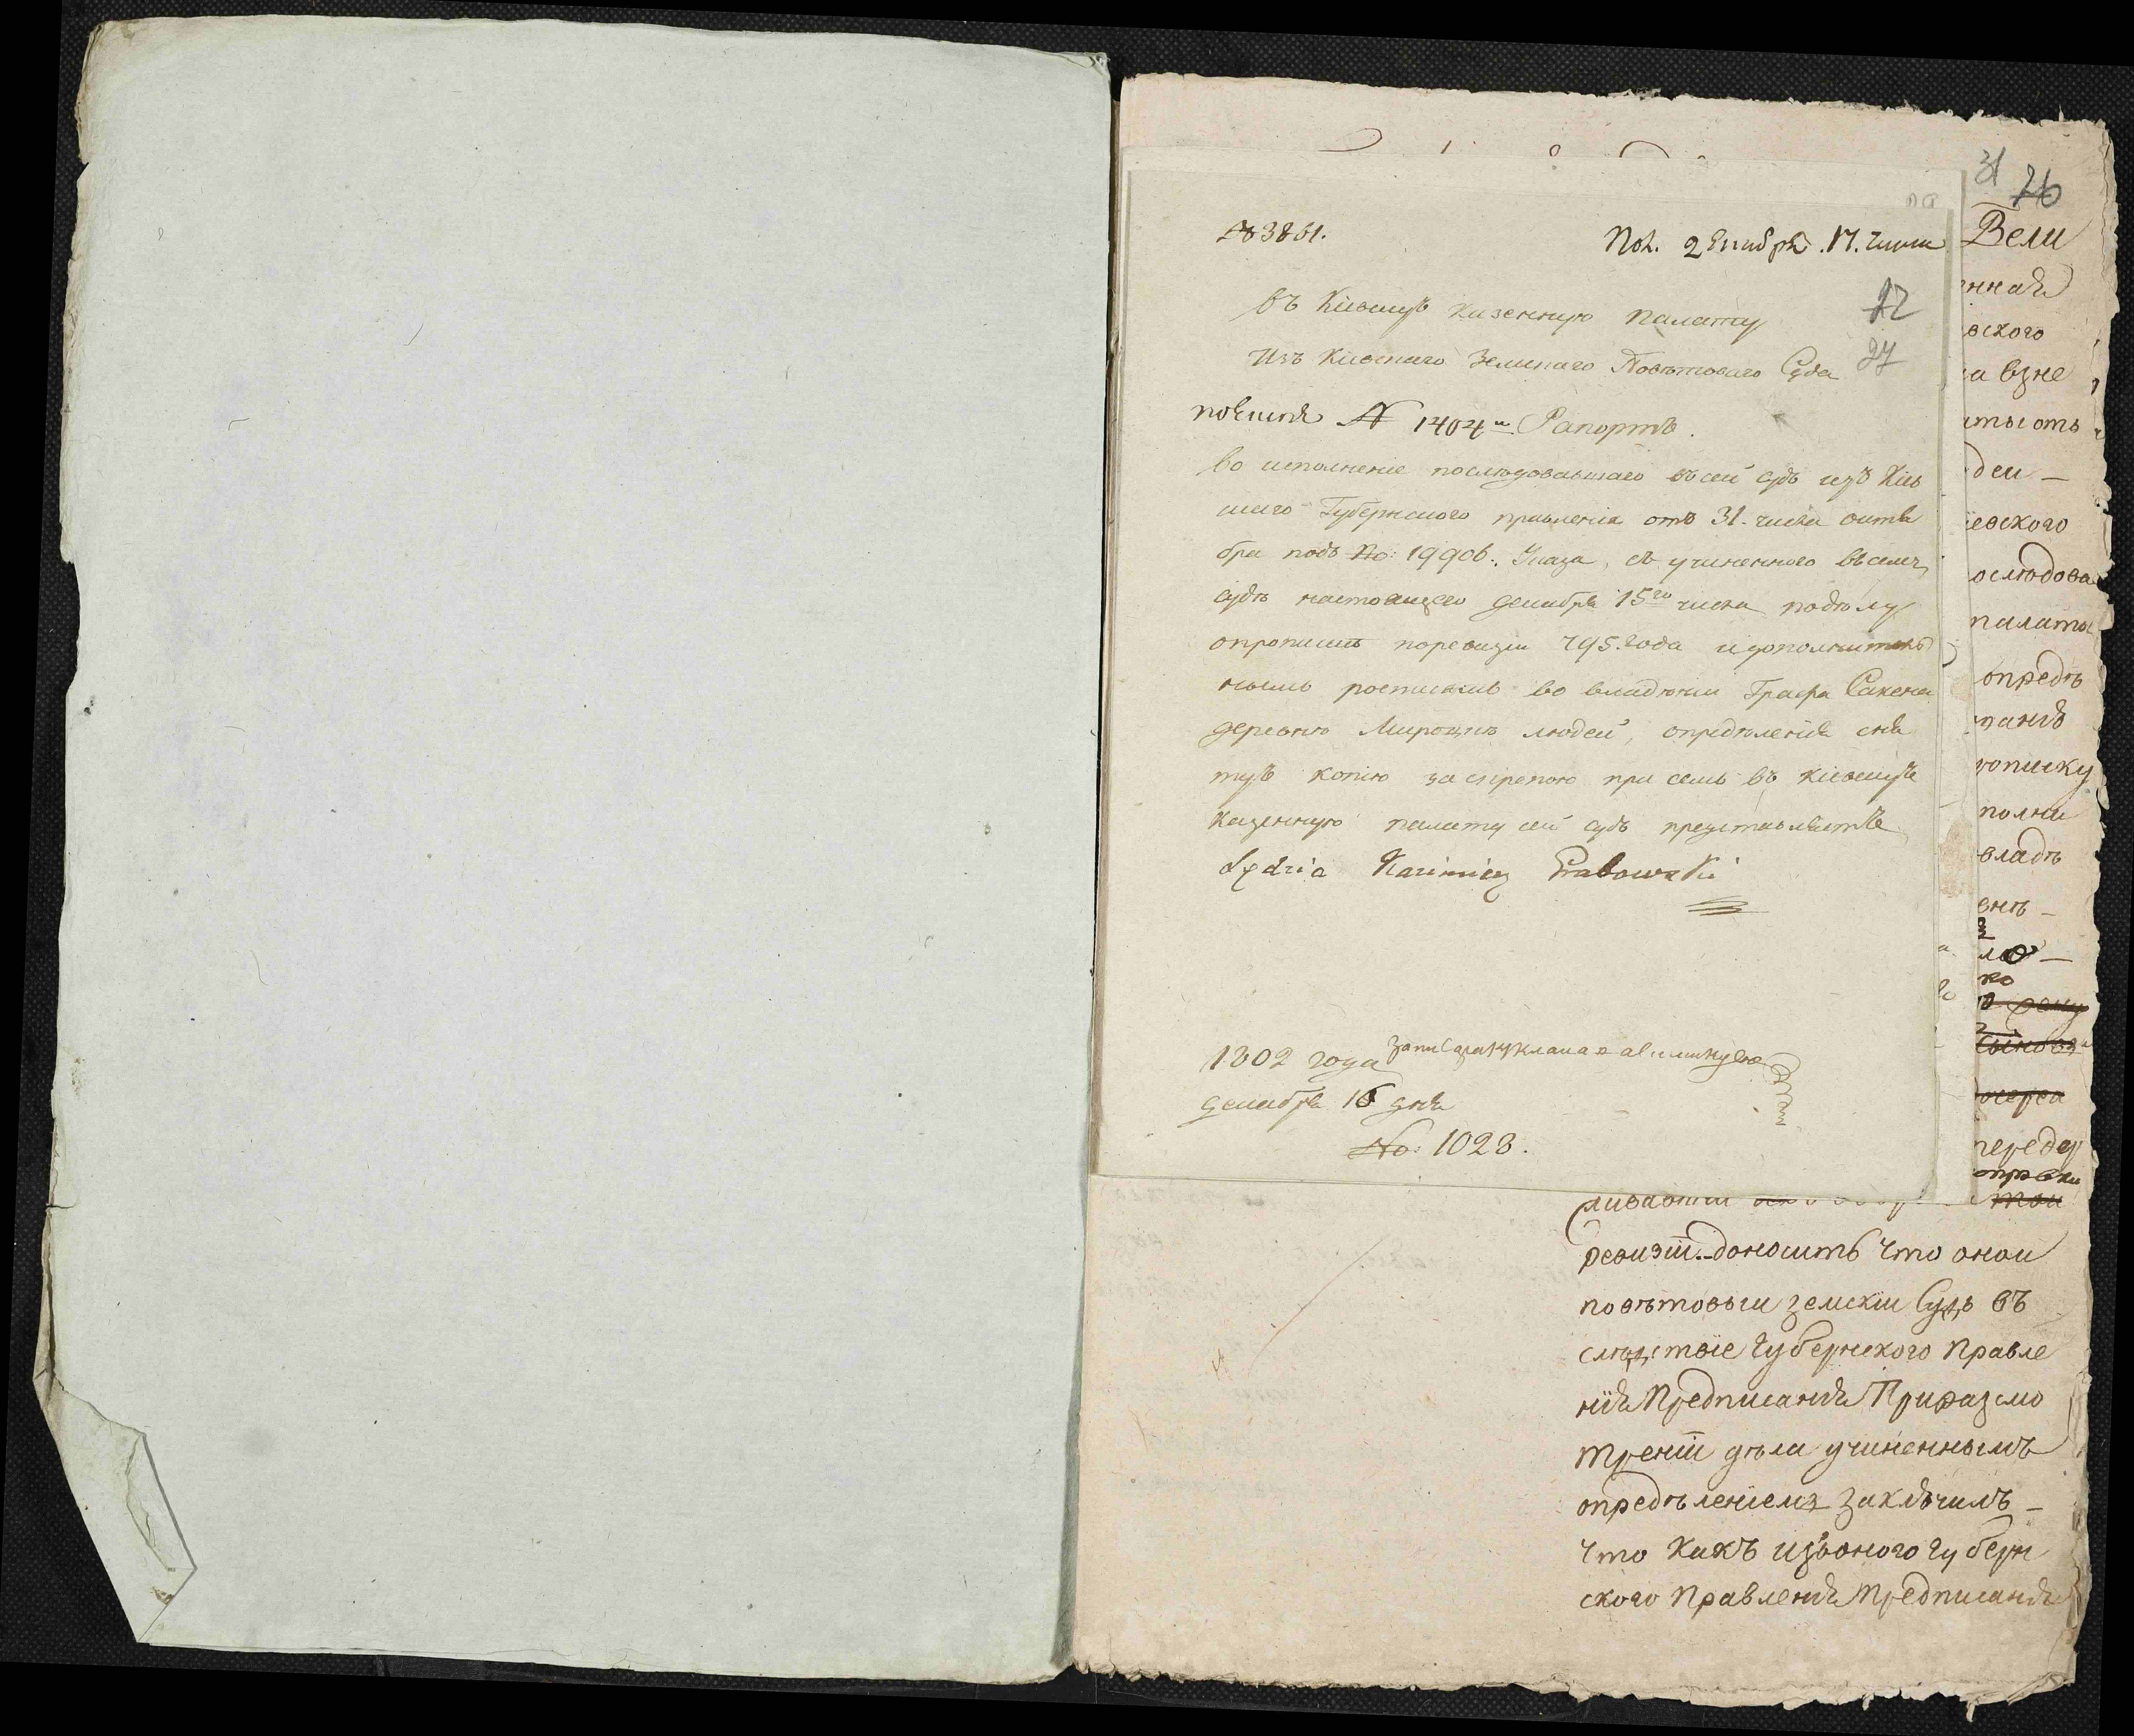 31 26
№ 3861.
Пол. 2 Декабря .17. числа
27
въ Кіевскую казенную палату
Изъ Кіевскаго Земскаго Повѣтоваго Суда
27
№ 1404 Рапортъ.
во исполненіе послѣдовавшаго въ сей судъ изъ Кіев
скаго Губернского правленія отъ 31. числа октя
бря подъ No: 19906. Указа, съ учиненного въ семъ
судѣ настоящего декабря 15го числа по дѣлу
о прописныхъ по ревизіи 795. года и дополнитель
нымъ во владѣніи Графа Сакена
деревнѣ Мироцкѣ людей, опредѣленія сня
тую копію за скрепою при семъ въ Кіевскую
казенную палату сей судъ представляетъ
Sędzia Kazimierz Grabowski
1802 года
декабря 16 дня
No: 1028.
Вели
нная
вского
а взне
ты отъ
деи —
іевского
ослѣдова
палаты
опредѣ
пания
полни
владѣ
передер
ревизіи доноситъ что онои
повѣтовыи земскіи Судъ въ
слѣдствіе Губернского Правле
нія Предписанія При разсмо
треніи дѣла учиненнымъ
опредѣленіемъ заключилъ —
что какъ изъ оного Губерн
ского Правленія предписанія